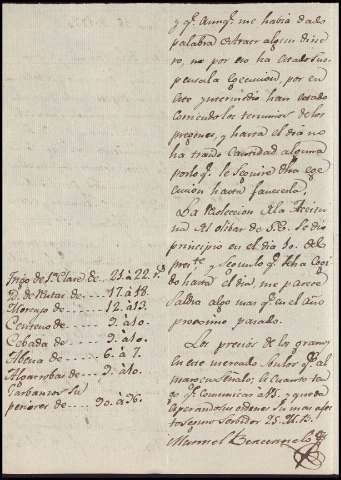 y q.e aunq.e me habia dado
palabra de traer algun dine
ro, no por eso ha estado sus-
pensa la egecucion, por en
este yntermedio han estado
corriendo los terminos de los
pregones, y hasta el dia no
ha traido cantidad alguna
por lo q.e le seguire dha ege
cucion hasta fenecerla.
La Recoleccion de la Aceitu
na del olibar de S.E. se dio
principio en el dia 10. del
pres.te y segun lo q.e se ha cogi
do hasta el dia, me parece
saldra algo mas q.e en el año
proximo pasado.
Los precios de los granos
en este mercado son los q.e al
margen señalo; es cuanto ten
go q.e comunicar a V.S. y queda
esperando sus ordenes su mas afec
to seguro serbidor Q.S.M.B.
Manuel
Trigo de 1.a Clase de 21. a 22. r.s
D. de Rutas de ---- 17. a 18.
Morcajo de ---- 12. a 13.
Centeno de ---- 9. a 10.
Cebada de ---- 9. a 10.
Abena de ---- 6. a 7.
Algarrobas de --- 9. a 10.
Garbanzos Su
periores de ---- 30. a 36.